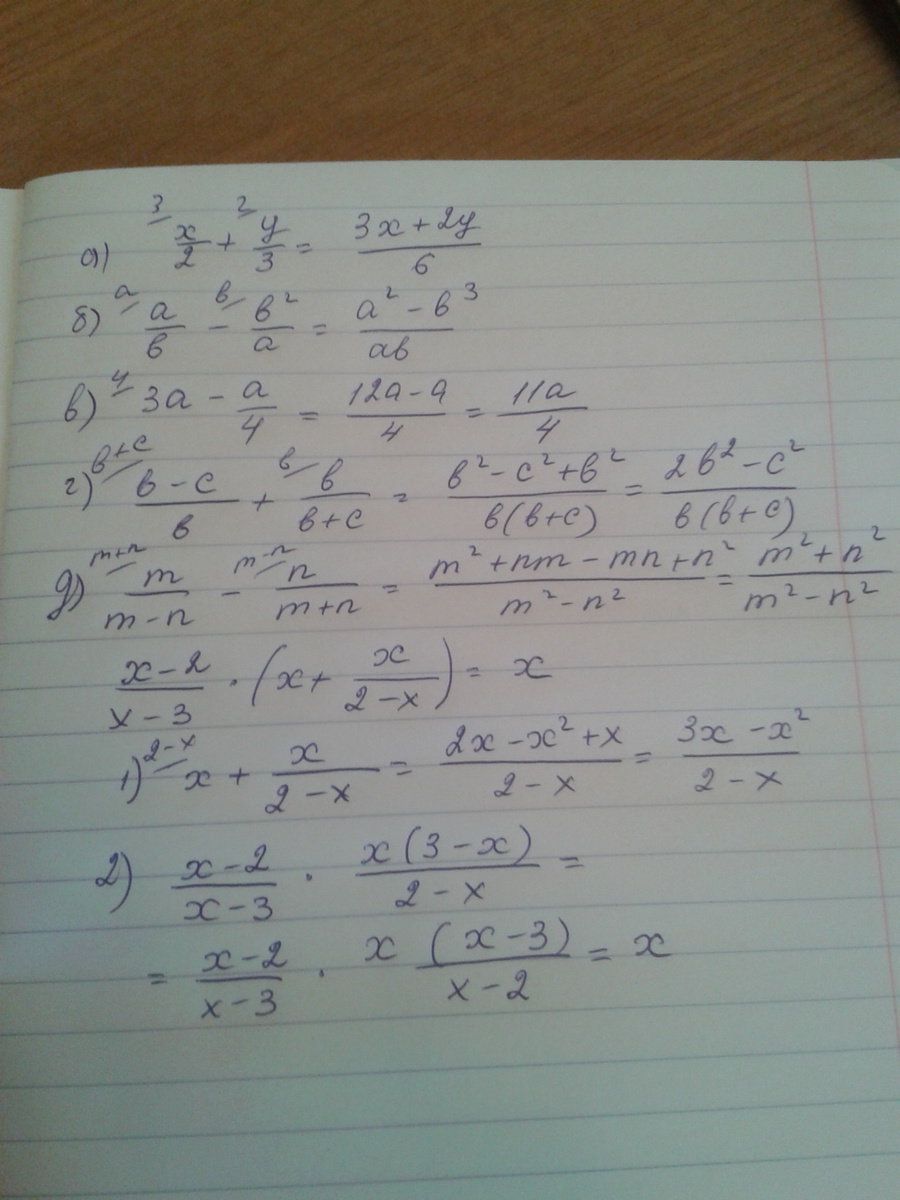 а) ³⁄ x/2 + ²⁄ y/3 = (3x + 2y)/6
б) ᵃ⁄ a/в − ᵇ⁄ в²/a = (a² − в³)/aв
в) ⁴⁄ 3a − a/4 = (12a − a)/4 = 11a/4
г) ᵇ⁺ᶜ⁄ (в − c)/в + ᵇ⁄ в/(в + c) = (в² − c² + в²)/(в(в + c)) = (2в² − c²)/(в(в + c))
д) ᵐ⁺ⁿ⁄ m/(m − n) − ᵐ⁻ⁿ⁄ n/(m + n) = (m² + nm − mn + n²)/(m² − n²) = (m² + n²)/(m² − n²)
(x − 2)/(x − 3) · (x + x/(2 − x)) = x
1) ²⁻ˣ⁄ x + x/(2 − x) = (2x − x² + x)/(2 − x) = (3x − x²)/(2 − x)
2) (x − 2)/(x − 3) · x(3 − x)/(2 − x) =
= (x − 2)/(x − 3) · x (x − 3)/(x − 2) = x